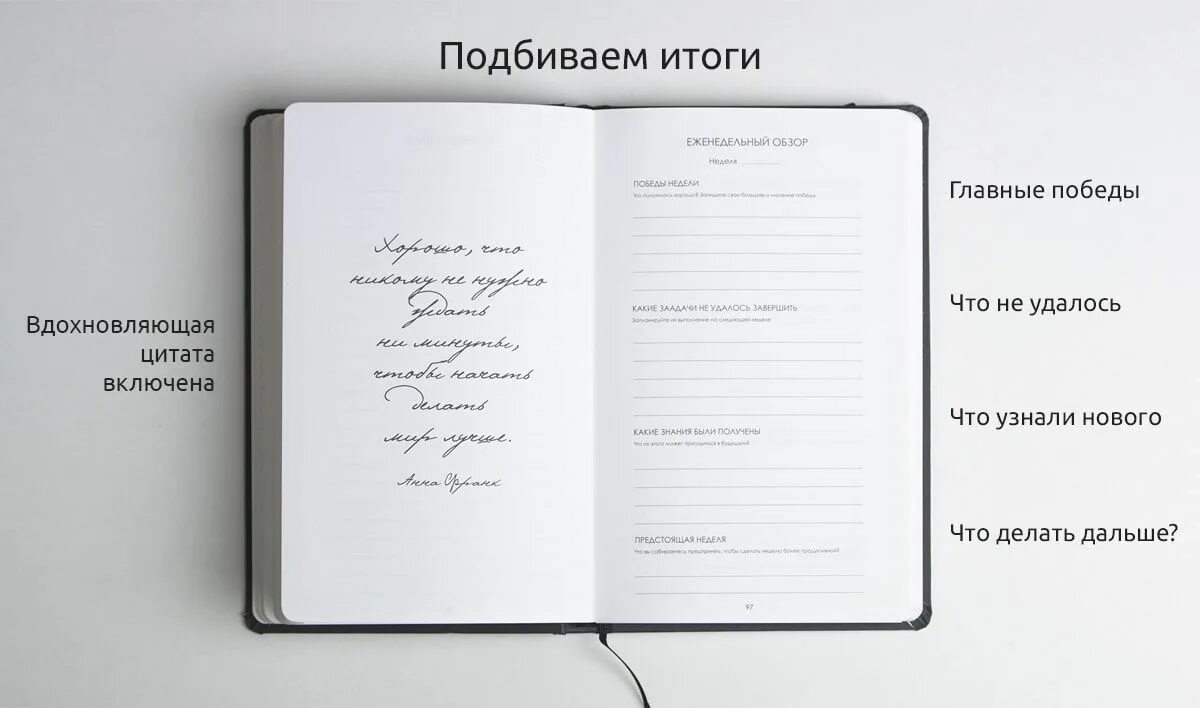 Подбиваем итоги
Вдохновляющая
цитата
включена
Хорошо, что
никому не нужно
ждать
ни минуты,
чтобы начать
делать
мир лучше.
Анна Франк
ЕЖЕНЕДЕЛЬНЫЙ ОБЗОР
Неделя
ПОБЕДЫ НЕДЕЛИ
Что получилось хорошо? Запишите свои большие и маленькие победы
КАКИЕ ЗААДАЧИ НЕ УДАЛОСЬ ЗАВЕРШИТЬ
Запланируйте их выполнение на следующей неделе
КАКИЕ ЗНАНИЯ БЫЛИ ПОЛУЧЕНЫ
Что из этого может пригодиться в будущем?
ПРЕДСТОЯЩАЯ НЕДЕЛЯ
Что вы собираетесь предпринять, чтобы сделать неделю более продуктивной?
97
Главные победы
Что не удалось
Что узнали нового
Что делать дальше?